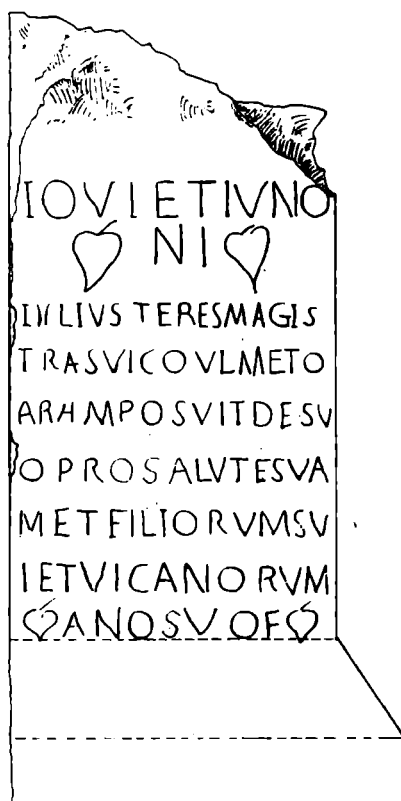 IOVIETIVNO
❦ NI ❦
IVLIVS TERESMAGIS
TRASVICOVLMETO
ARAMPOSVITDESV
OPROSALVTESVA
METFILIORVMSV
IETVICANORVM
❦ANOSVOF❦